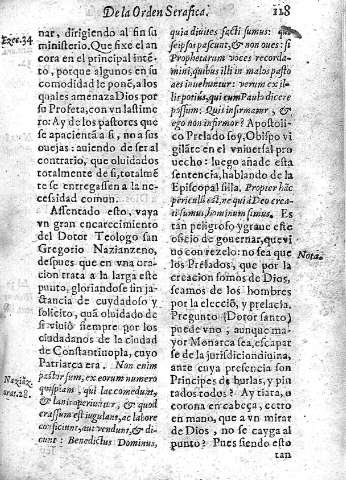 De la Orden Serafica.
128
nar, dirigiendo al fin su
ministerio. Que fixe el an
cora en el principal inté-
to, porque algunos en su
comodidad le ponẽ, a los
quales amenaza Dios por
su Profeta, con vn lastimo
ro: Ay de los pastores que
se apacientã a si, no a sus
ouejas: auiendo de ser al
contrario, que oluidados
totalmente de si, totalmẽ
te se entregassen a la ne-
cessidad comun.
Assentado esto, vaya
vn gran encarecimiento
del Dotor Teologo san
Gregorio Nazianzeno,
despues que en vna ora-
cion trata a la larga este
punto, gloriandose sin ja-
ctancia de cuydadoso y
solicito, quã oluidado de
si viuiò siempre por los
ciudadanos de la ciudad
de Constantinopla, cuyo
Patriarca era. Non enim
pastor sum, ex eorum numero
quispiam, qui lac comedunt,
& lanis operiuntur, & quod
crassum est iugulant, ac labore
conficiunt, aut vendunt, & di-
cunt: Benedictus Dominus,
Ezec. 34
Naziãz.
orat. 28.
quia diuites facti sumus: qui
seipsos pascunt, & non oues: si
Prophetarum voces recorda-
mini, quibus illi in malos pasto
res inuehuntur: verum ex il-
lis potius, qui cum Paulo dicere
possum: Quis infirmatur, &
ego non infirmor? Apostoli-
co Prelado soy, Obispo vi
gilãte en el vniuersal pro
uecho: luego añade esta
sentencia, hablando de la
Episcopal silla. Propier hãc
periculũ est, ne qui à Deo crea-
ti sumus, hominum simus. Es
tan peligroso y graue este
oficio de gouernar, que vi
uo con rezelo: no sea que
los Prelados, que por la
creacion somos de Dios,
seamos de los hombres
por la elecciõ, y prelacia.
Pregunto (Dotor santo)
puede vno, aunque ma-
yor Monarca sea, escapar
se de la jurisdicion diuina,
ante cuya presencia son
Principes de burlas, y pin
tados todos? Ay tiara, o
corona en cabeça, cetro
en mano, que a vn mirar
de Dios, no se cayga al
punto? Pues siendo esto
tan
Nota.